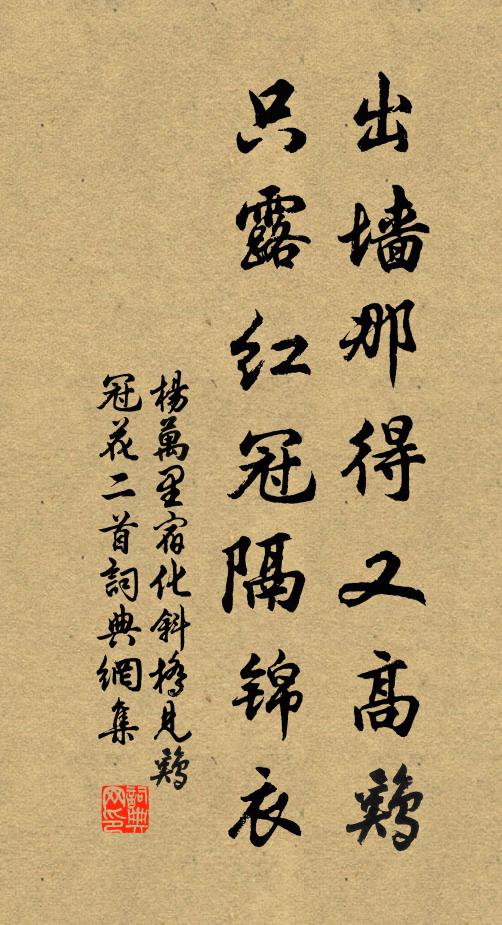 出墙那得又高鷄
只露红冠隔锦衣
楊萬里宿化斜橋見鷄
冠花二首詞典網集
詞典网印